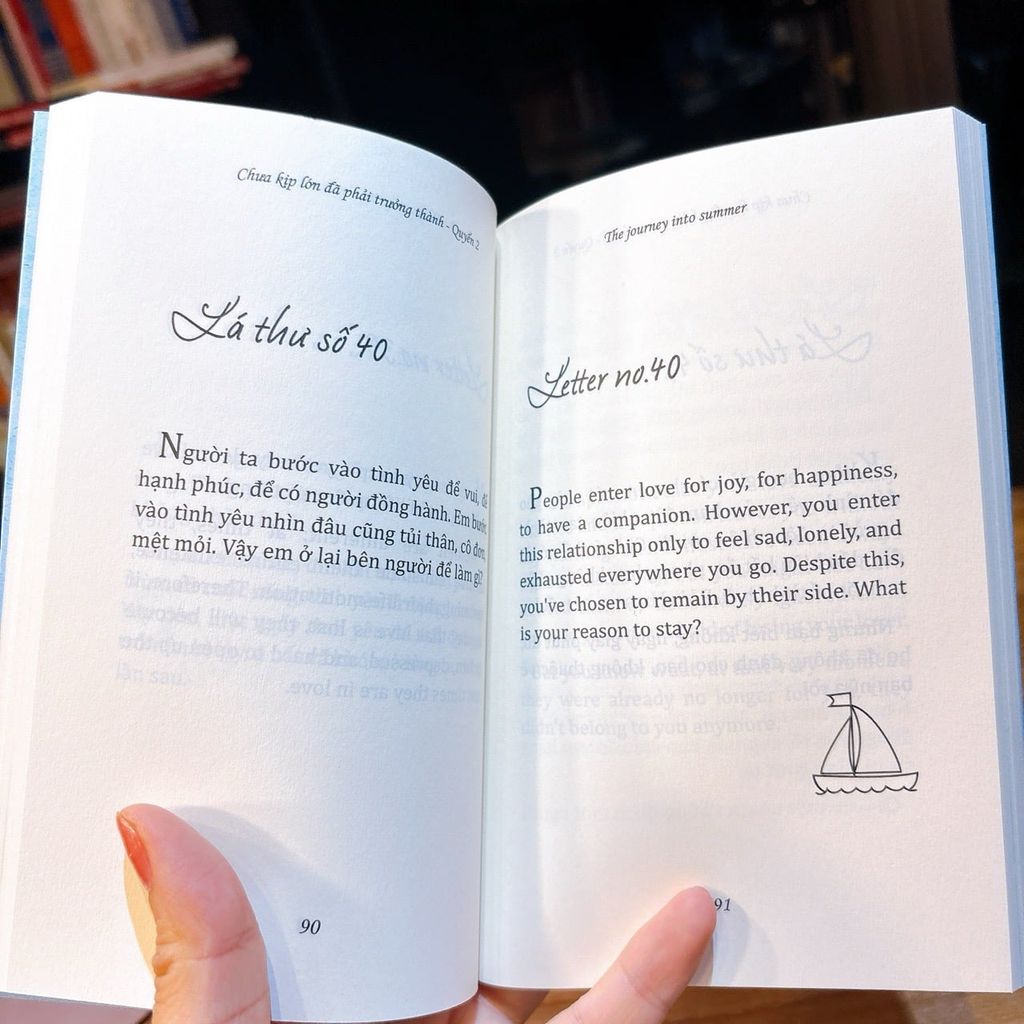 Chưa kịp lớn đã phải trưởng thành - Quyển 2
Lá thư số 40
Người ta bước vào tình yêu để vui, để
hạnh phúc, để có người đồng hành. Em bước
vào tình yêu nhìn đâu cũng tủi thân, cô đơn,
mệt mỏi. Vậy em ở lại bên người để làm gì?
90
The journey into summer
Letter no.40
People enter love for joy, for happiness,
to have a companion. However, you enter
this relationship only to feel sad, lonely, and
exhausted everywhere you go. Despite this,
you've chosen to remain by their side. What
is your reason to stay?
91